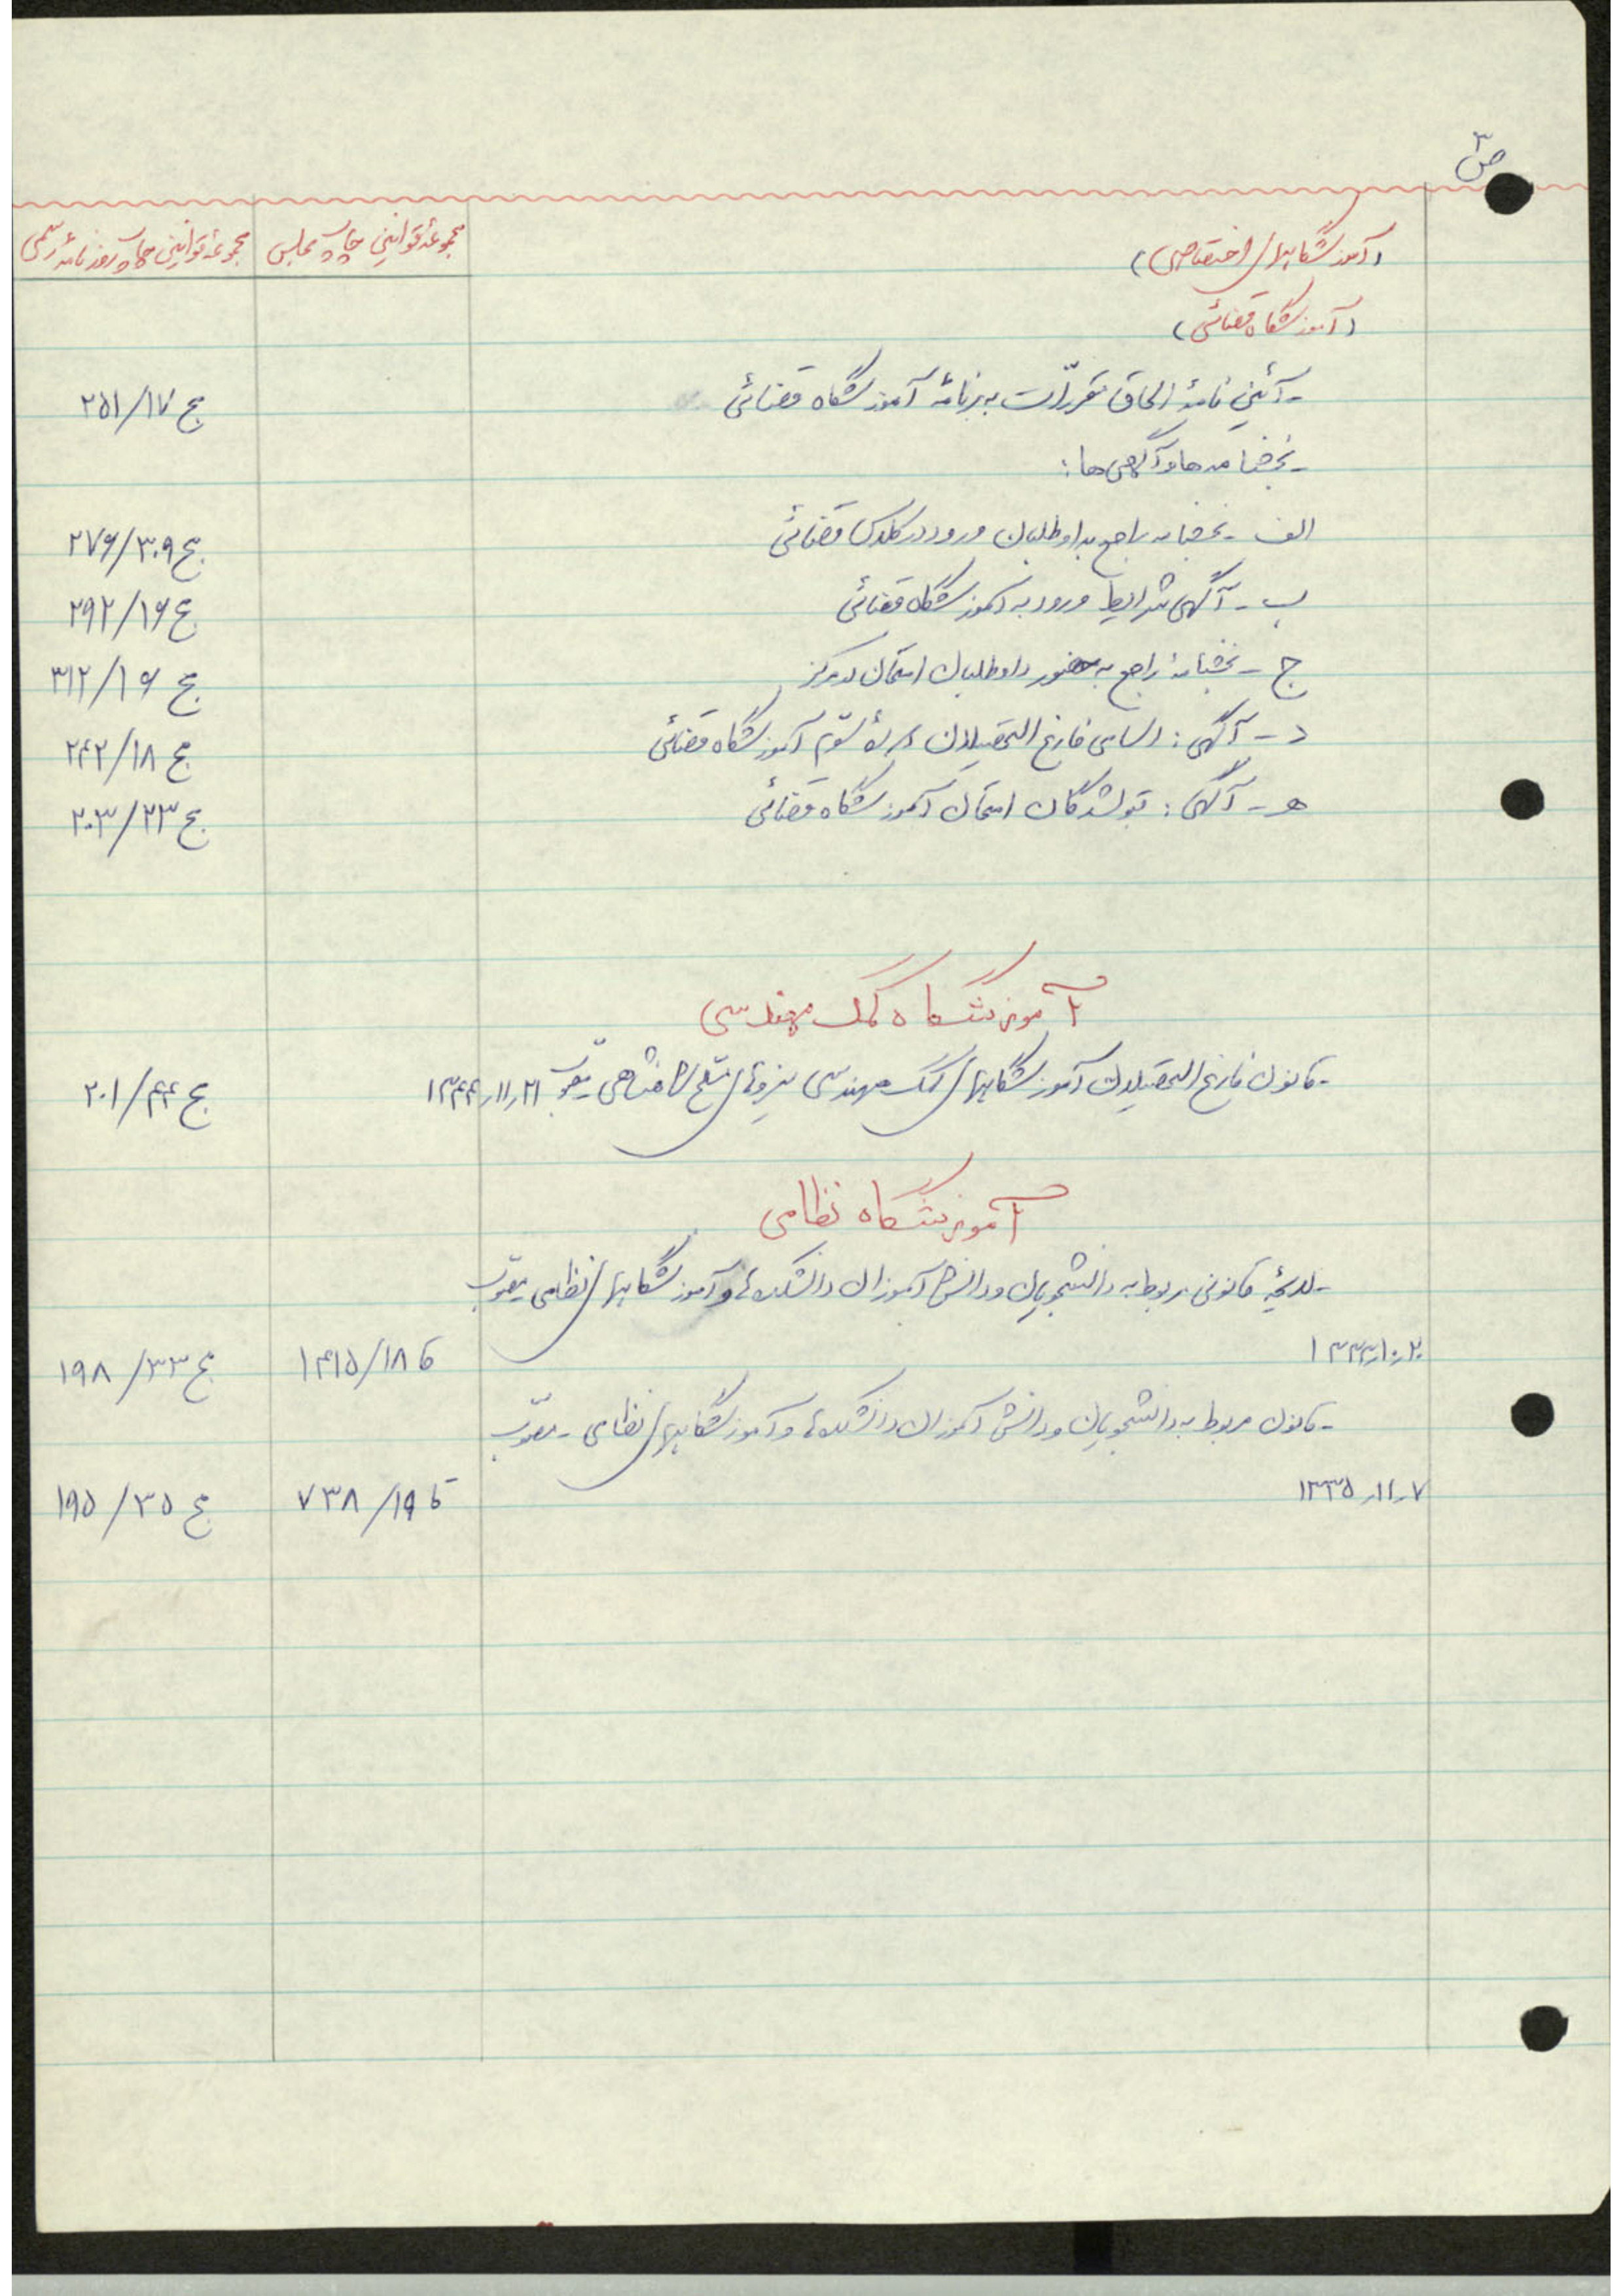 ص ۳
(آموزشگاههای اختصاصی) مجموعهٔ قوانین چاپ مجلس مجموعهٔ قوانین چاپ روزنامهٔ رسمی
(آموزشگاه قضائی)
- آئین نامهٔ الحاق مقررات به برنامهٔ آموزشگاه قضائی ج ۲۵۱/۱۷
- بخشنامه ها و آگهی ها :
الف - بخشنامه راجع بداوطلبان ورود در کلاس قضائی ج ۲۷۶/۳۰۹
ب - آگهی شرایط ورود به آموزشگاه قضائی ج ۲۹۲/۱۶
ج - بخشنامهٔ راجع به حضور داوطلبان امتحان در مرکز ج ۳۱۲/۱۶
د - آگهی : اسامی فارغ التحصیلان دورهٔ سوّم آموزشگاه قضائی ج ۲۴۲/۱۸
هـ - آگهی : قبولشدگان امتحان آموزشگاه قضائی ج ۲۰۳/۲۳
آموزشگاه کمک مهندسی
- قانون فارغ التحصیلان آموزشگاههای کمک مهندسی نیروهای مسلّح شاهنشاهی مصوّب ۲۱ر۱۱ر۱۳۴۴ ج ۲۰۱/۴۴
آموزشگاه نظامی
- لایحهٔ قانونی مربوط به دانشجویان و دانش آموزان دانشکده‌ها و آموزشگاههای نظامی مصوّب
۲ر۱۰ر۱۳۳۳ ق ۱۴۱۵/۱۸ ج ۱۹۸/۳۳
- قانون مربوط به دانشجویان و دانش آموزان دانشکده‌ها و آموزشگاههای نظامی - مصوّب
۷ر۱۱ر۱۳۳۵ ق ۷۳۸/۱۹ ج ۱۹۵/۳۵